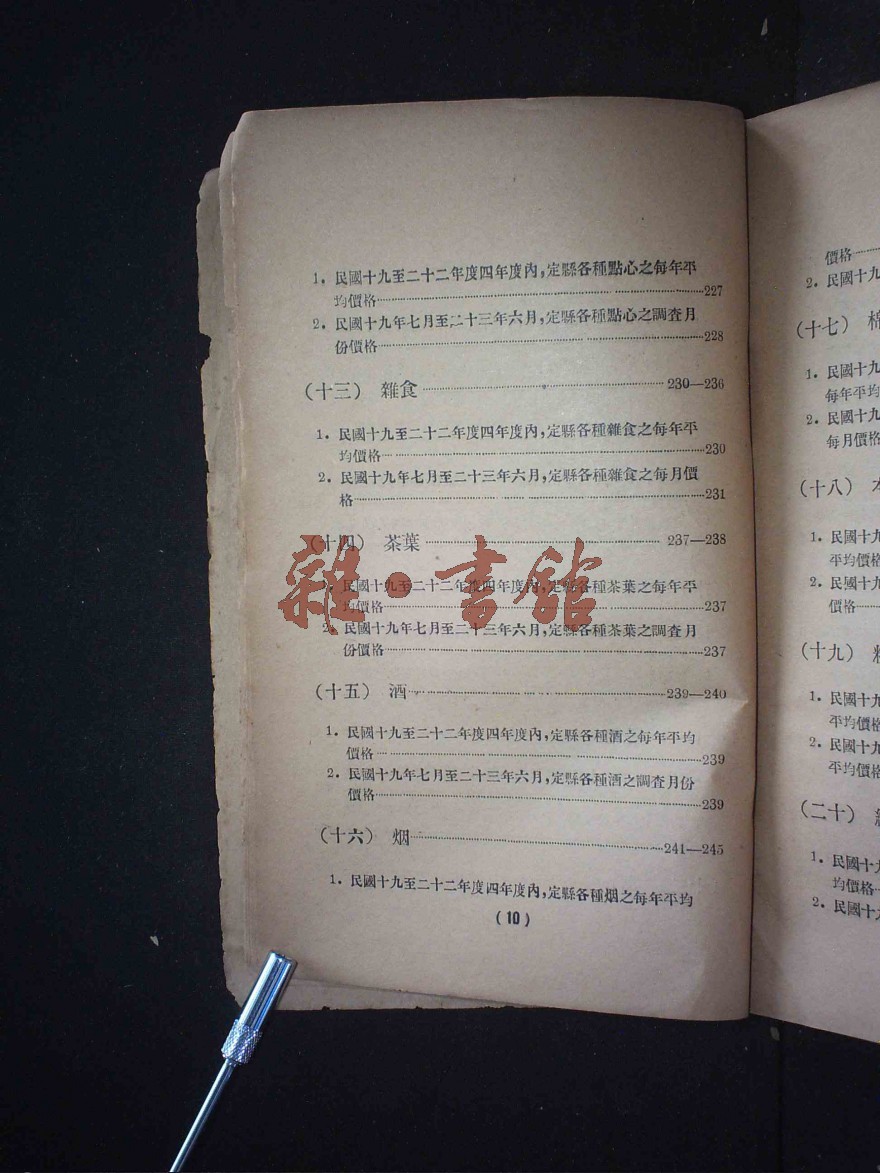 1. 民國十九至二十二年度四年度內,定縣各種點心之每年平
均價格……227
2. 民國十九年七月至二十三年六月,定縣各種點心之調查月
份價格……228
(十三) 雜食……230—236
1. 民國十九至二十二年度四年度內,定縣各種雜食之每年平
均價格……230
2. 民國十九年七月至二十三年六月,定縣各種雜食之每月價
格……231
(十四) 茶葉……237—238
民國十九至二十二年度四年度內,定縣各種茶葉之每年平
均價格……237
2. 民國十九年七月至二十三年六月,定縣各種茶葉之調查月
份價格……237
(十五) 酒……239—240
1. 民國十九至二十二年度四年度內,定縣各種酒之每年平均
價格……239
2. 民國十九年七月至二十三年六月,定縣各種酒之調查月份
價格……239
(十六) 烟……241—245
1. 民國十九至二十二年度四年度內,定縣各種烟之每年平均
(10)
雜·書館
價格
2. 民國十九
(十七) 棉
1. 民國十九
每年平均
2. 民國十九
每月價格
(十八)
1. 民國十九
平均價格
2. 民國十九
價格
(十九)
1. 民國十九
平均價格
2. 民國十九
平均價格
(二十)
1. 民國十九
均價格
2. 民國十